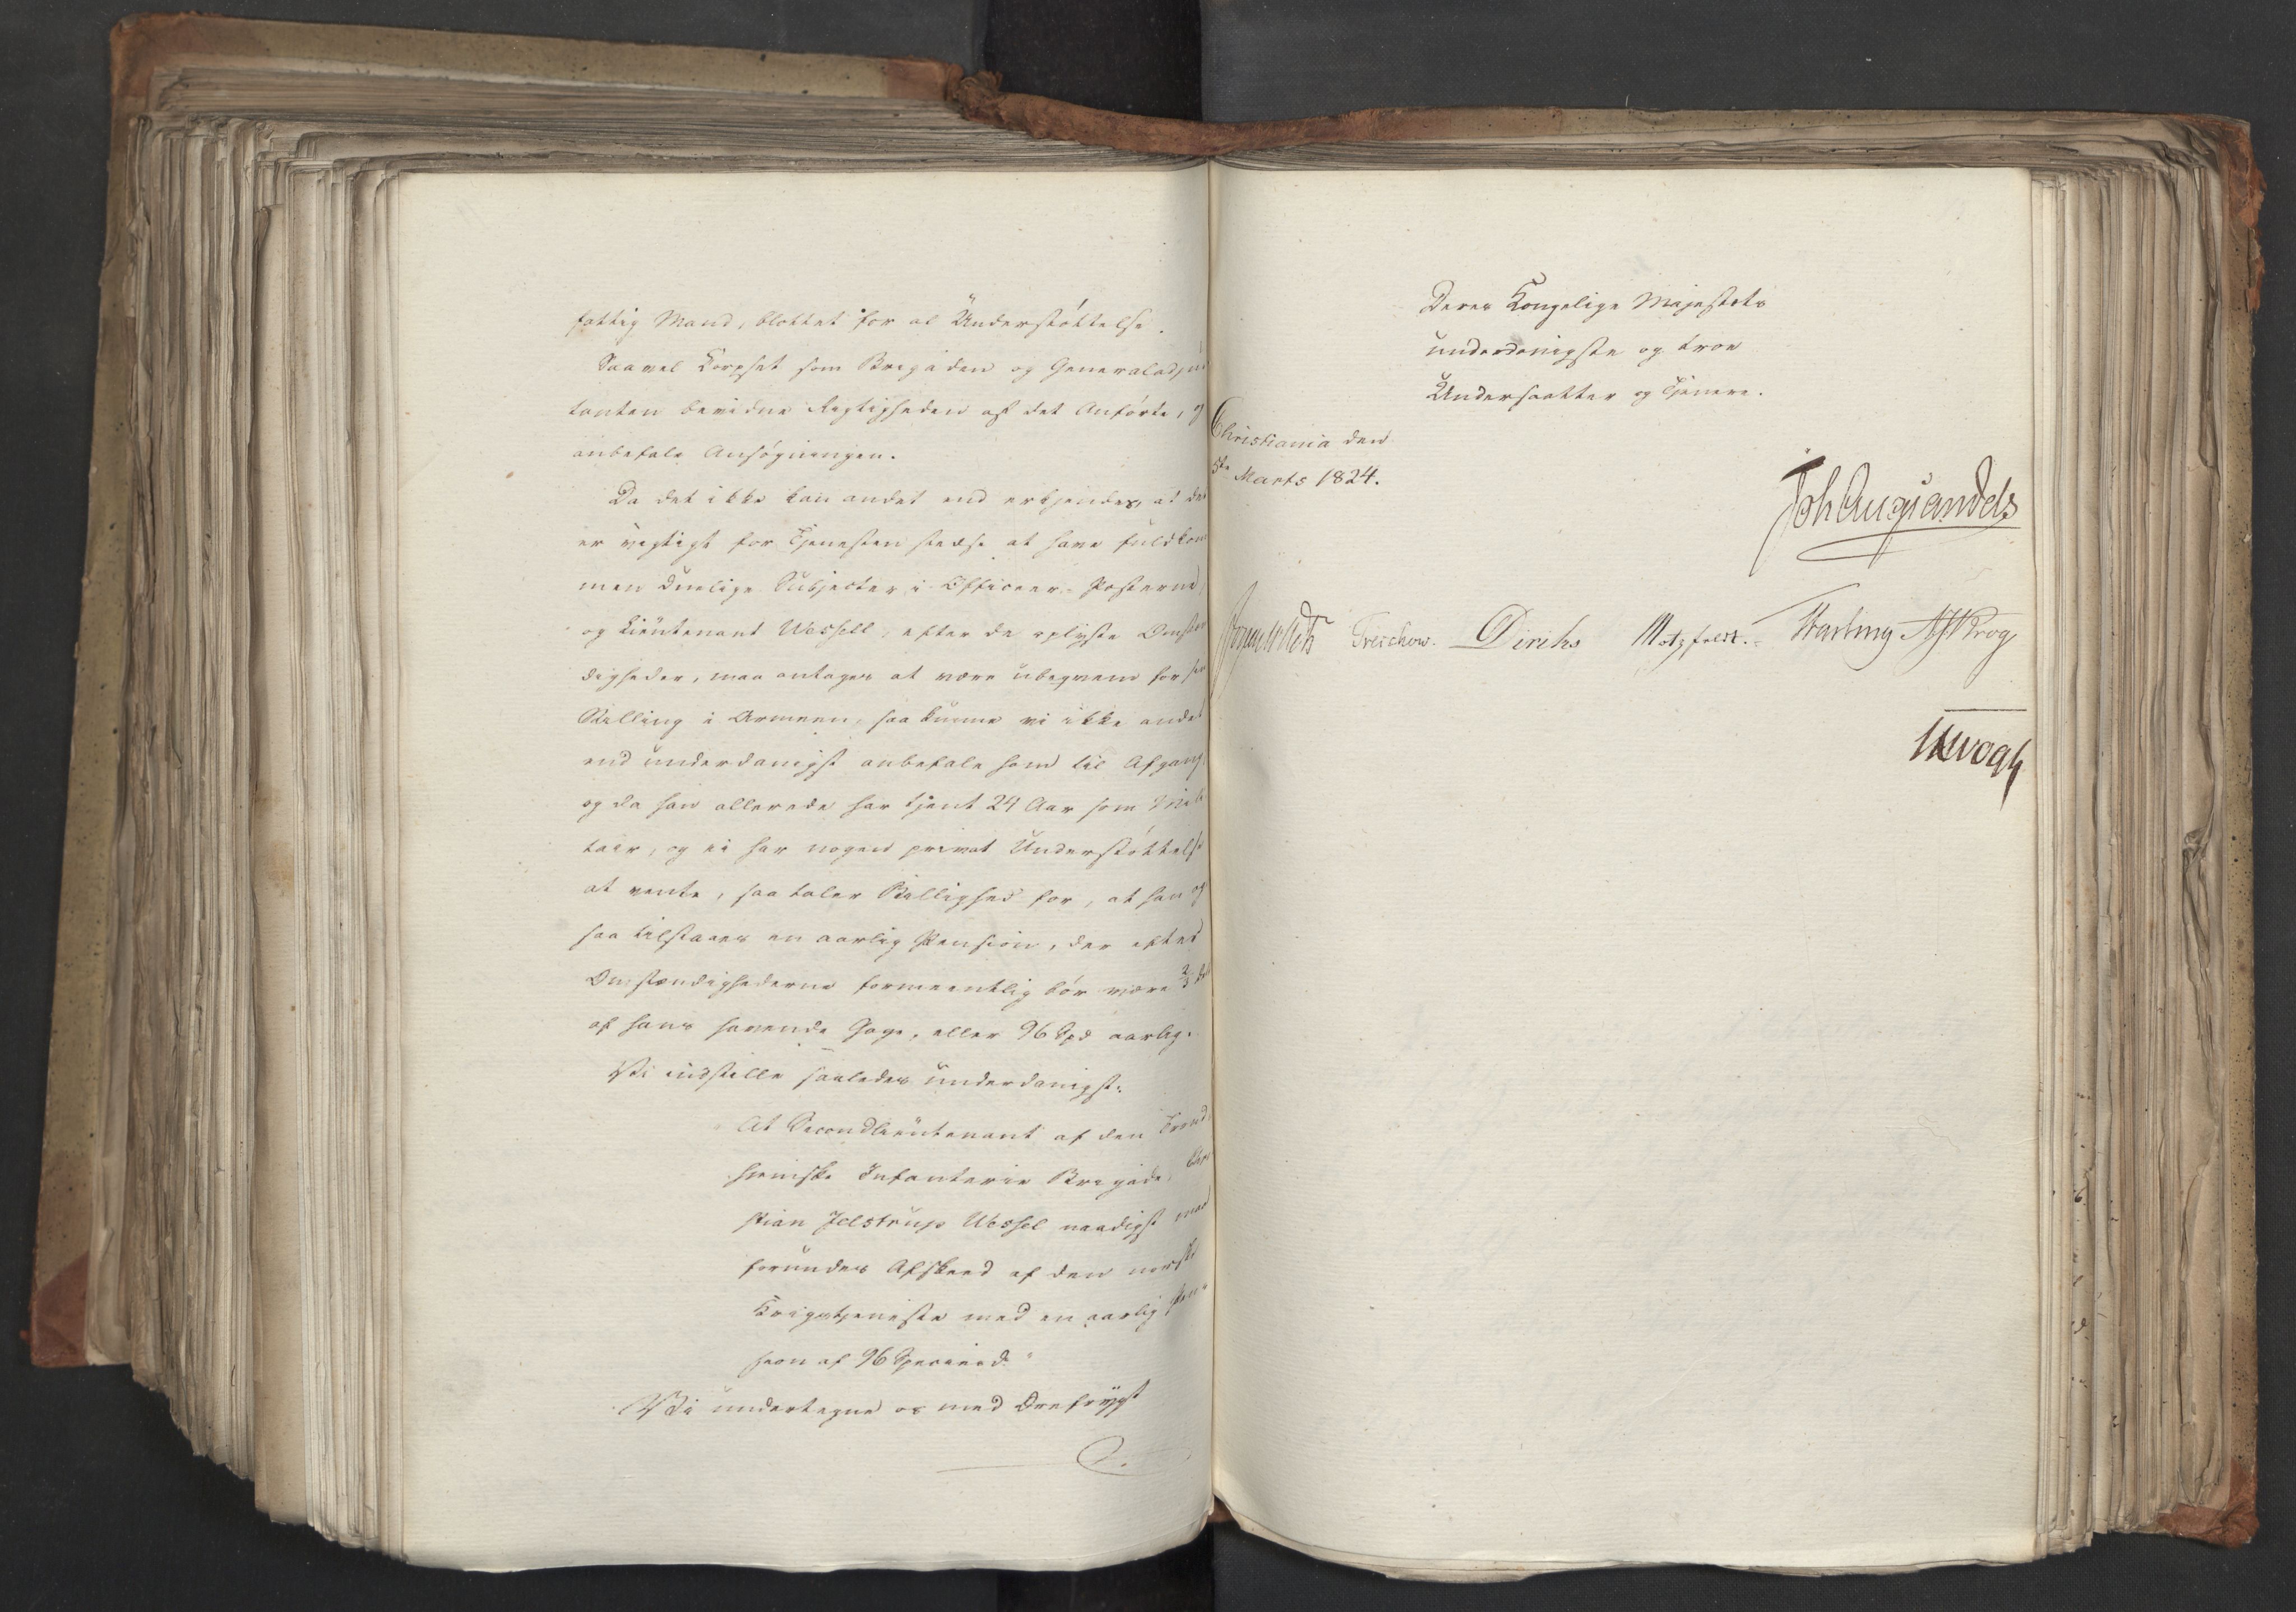 fattig Mand, blottet for al Understøttelse.
Saavel Korpset som Brigaden og Generaladju
tanten bevidne Rigtigheden af det Anførte, og
anbefale Ansøgningen.
Da det ikke kan andet end erkjendes, at det
er vigtigt for Tjenesten stedse at have fuldkom
men duelige Subjecter i Officeer-Posterne,
og Lieutenant Wessell, efter de oplyste Omstæn
digheder, maa antages at være ubeqvem for sin
Stilling i Armeen, saa kunne vi ikke andet
end underdanigst anbefale ham til Afgang,
og da han allerede har tjent 24 Aar som Mili
tair, og ei har nogen privat Understøttelse
at vente, saa taler Billighed for, at han og
saa tilstaaes en aarlig Pension, der efter
Omstændighederne formeentlig bør være 2/3 Deel
af hans havende Gage, eller 96 Spd aarlig.
Vi indstille saaledes underdanigst:
At Secondlieutenant af den Trond
hjemske Infanterie Brigade, Chri
stian Jelstrup Wessel naadigst med
forundes Afskeed af den norske
Krigstjeneste med en aarlig Pen
sion af 96 Speciesd."
Vi undertegne os med Ærefrygt
Deres Kongelige Majestets
underdanigste og troe
Undersaatter og Tjenere.
Christiania den
5te Marts 1824.
Joh Aug Sandels
Treschow. Diriks Motzfeldt. Fasting
JHVogt